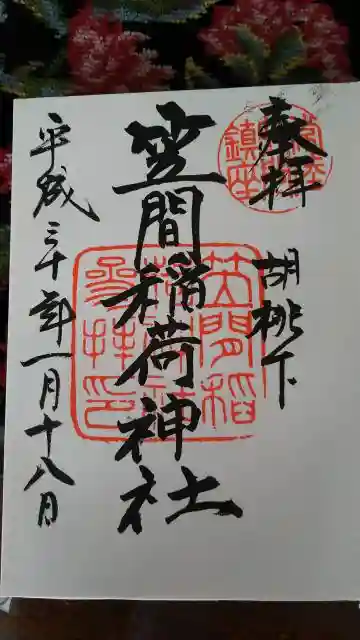 奉拝
胡桃下
笠間稲荷神社
平成三十年一月十八日
鎮座
笠間稲